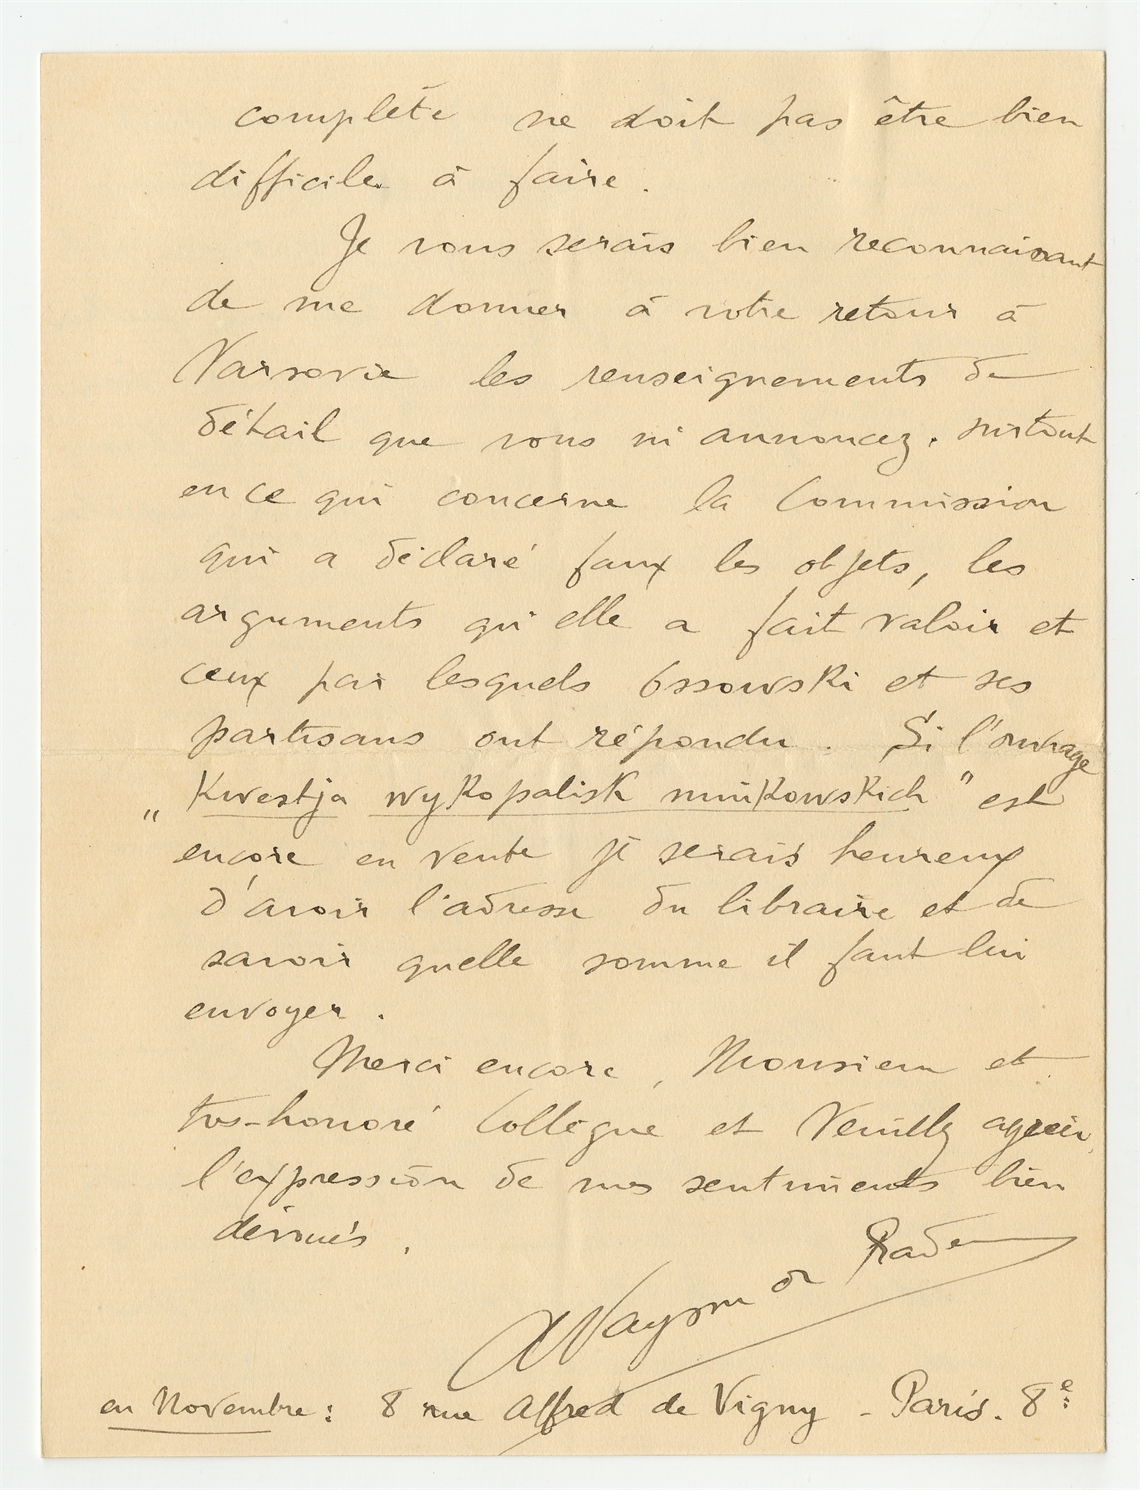 complète ne doit pas être bien
difficile à faire.
Je vous serais bien reconnaissant
de me donner à votre retour à
Varsovie les renseignements de
détail que vous m'annoncez. surtout
en ce qui concerne la Commission
qui a déclaré faux les objets, les
arguments qu'elle a fait valoir et
ceux par lesquels Ossowski et ses
partisans ont répondu. Si l'ouvrage
„Kwestja wykopalisk mnikowskich" est
encore en vente je serais heureux
d'avoir l'adresse du libraire et de
savoir quelle somme il faut lui
envoyer.
Merci encore, Monsieur et
très-honoré Collègue et Veuillez agréer,
l'expression de mes sentiments bien
dévoués.
A Vayson de Pradenne
en Novembre: 8 rue Alfred de Vigny - Paris. 8e: